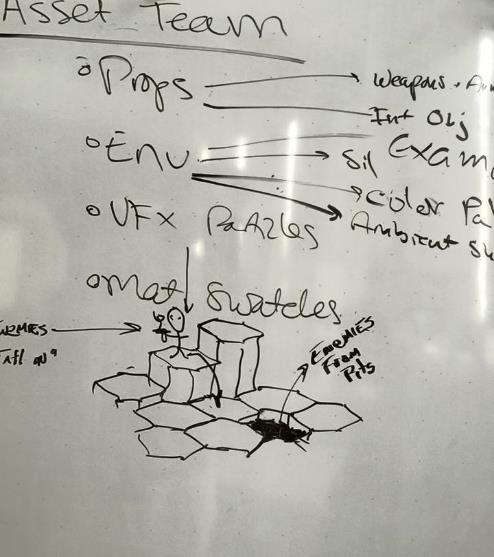 Asset Team
Props
Weapons
Int Obj
Env
Sil
Exam
Color Pal
Ambient
VFx Patzles
Mat Swatches
Enemies
From
Pits